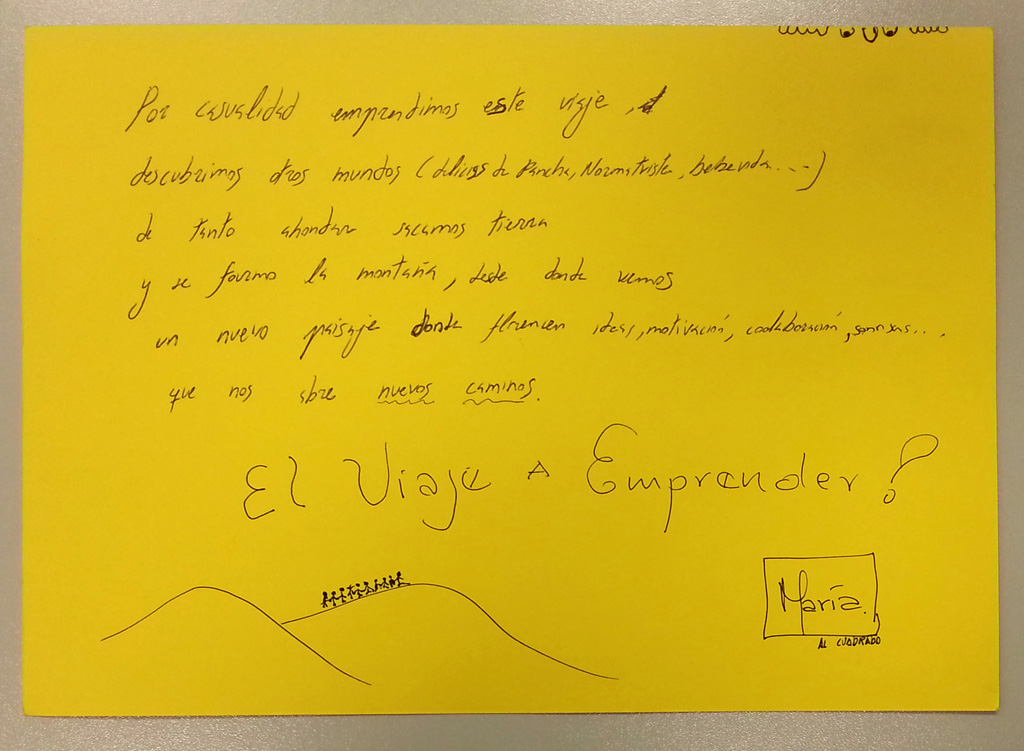 Por casualidad emprendimos este viaje,
descubrimos otros mundos (delicias de Pancha, Normatriste, bebevida....)
de tanto ahondar sacamos tierra
y se formo la montaña, desde donde vemos
un nuevo paisaje donde florencen ideas, motivación, coolaboración, sonrisas...
que nos abre nuevos caminos.
El Viaje A Emprender!
María.
AL CUADRADO